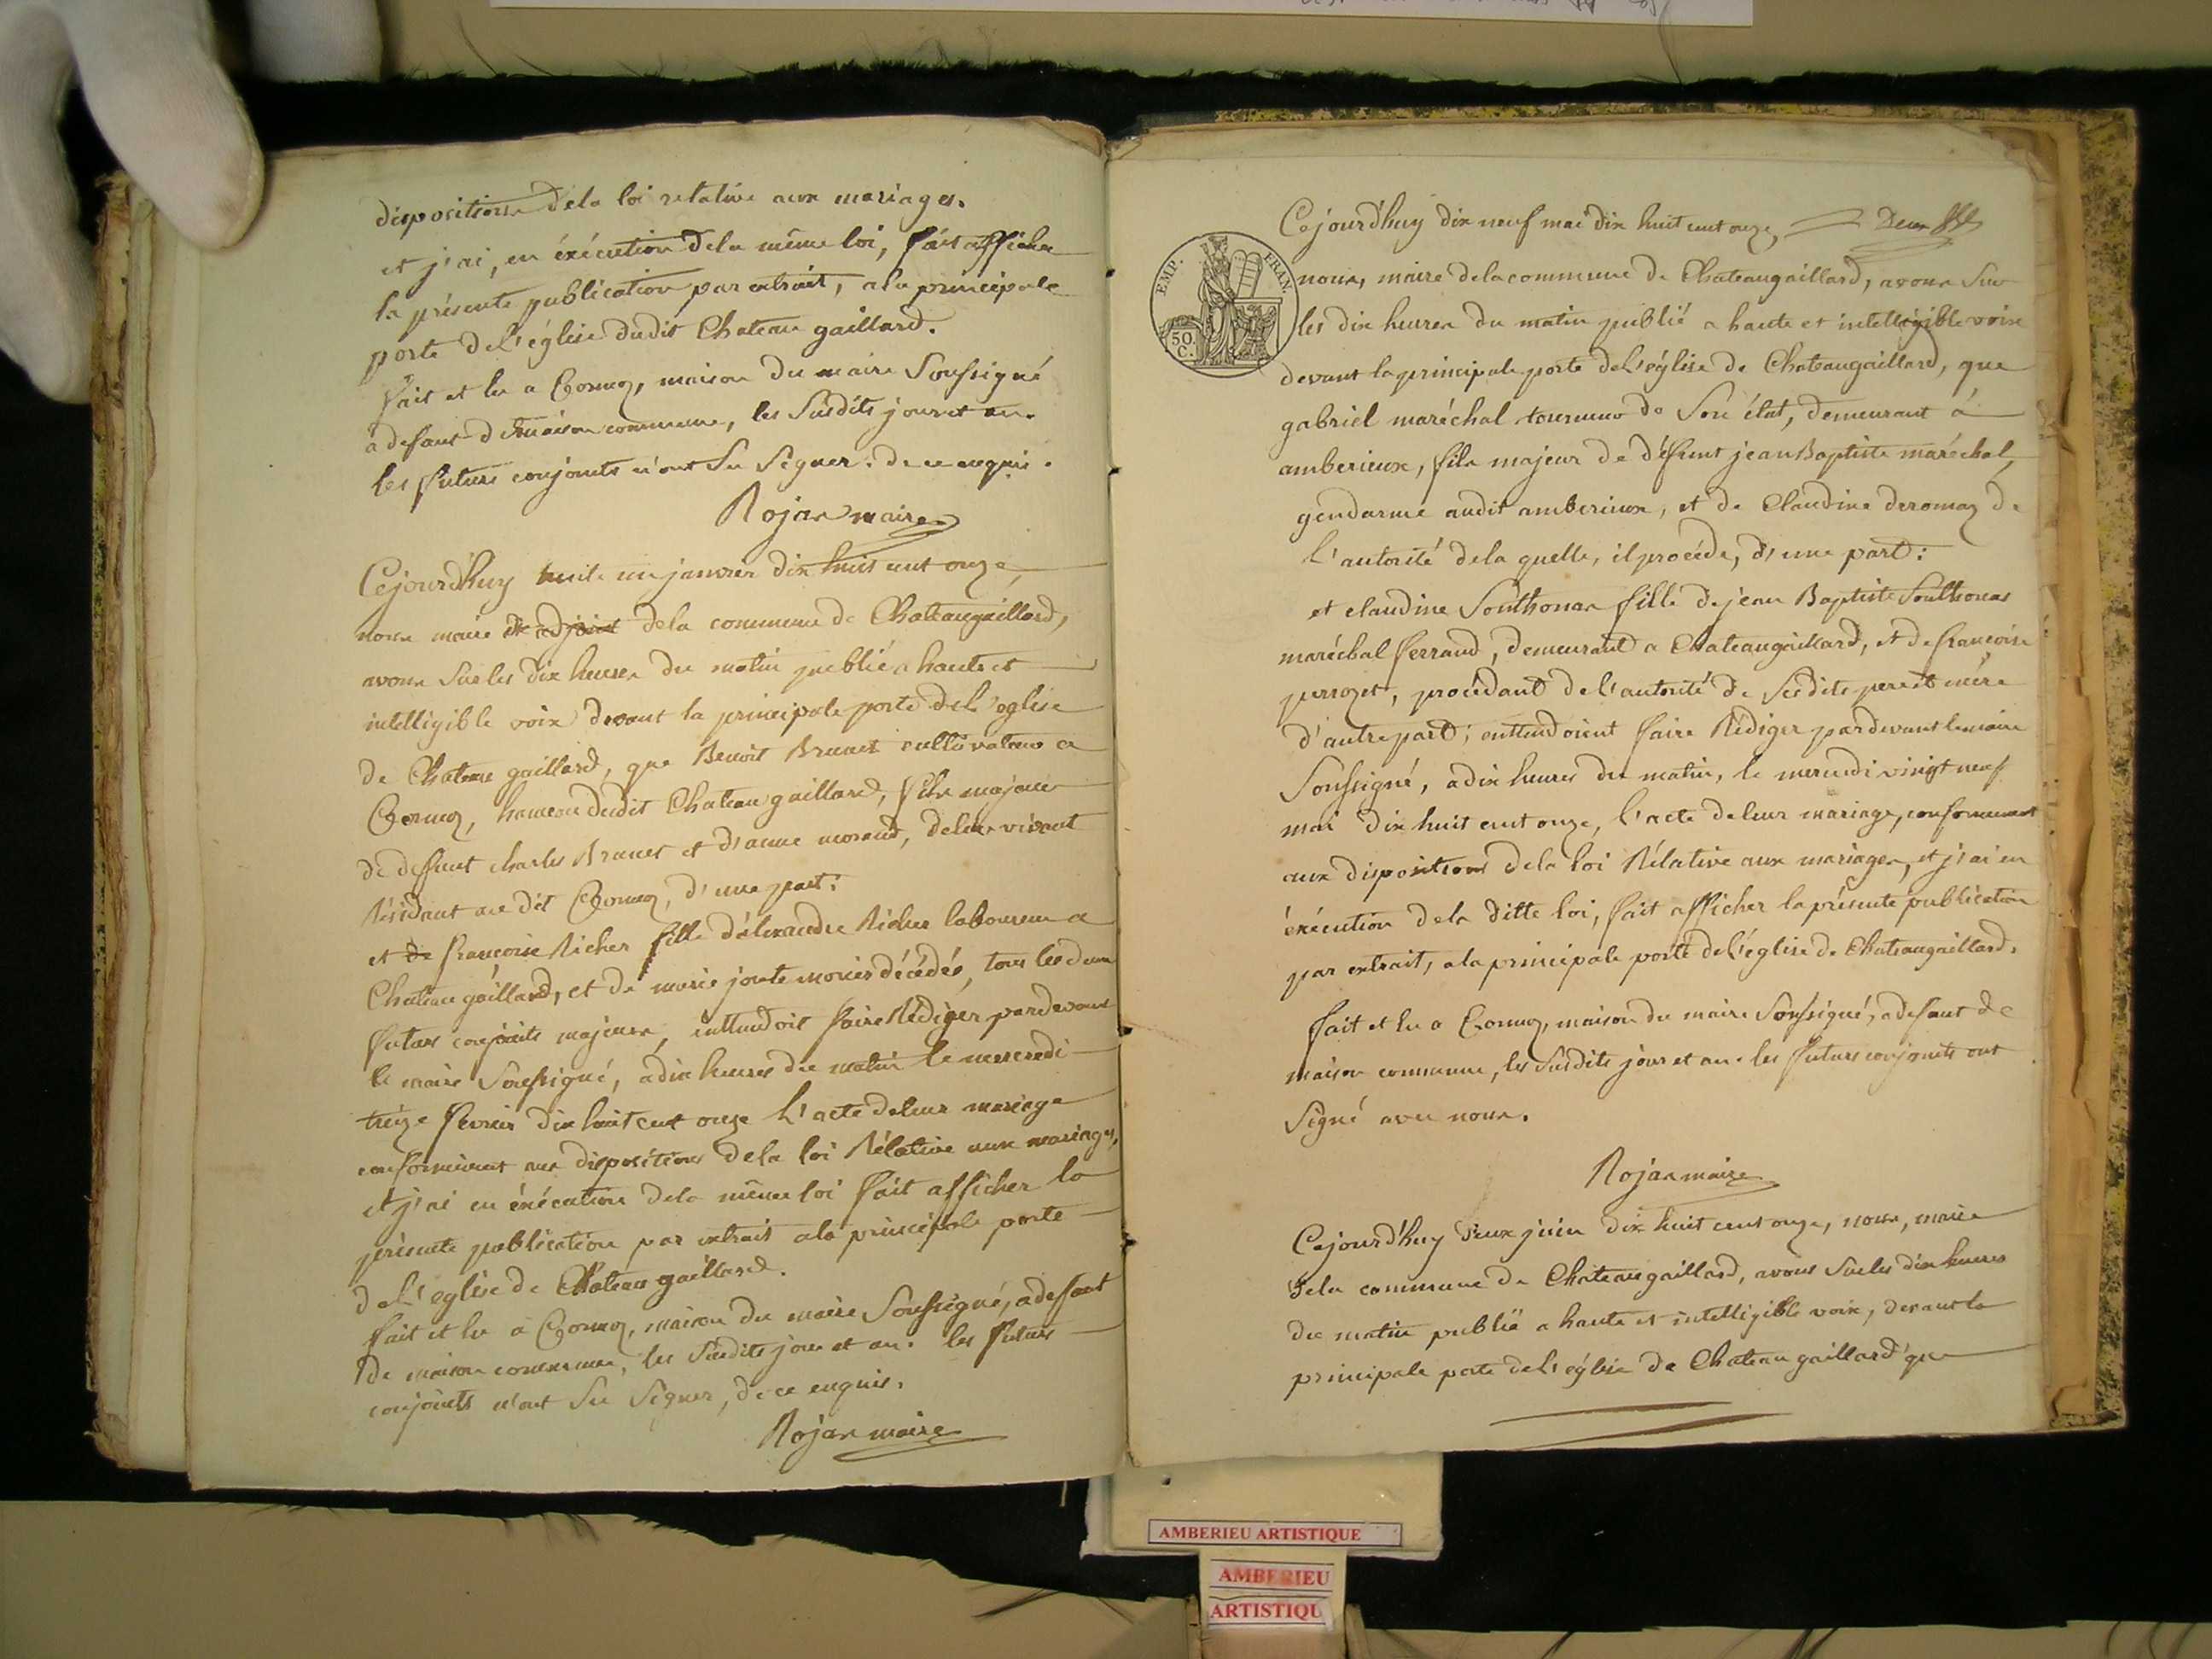 dispositions dela loi relative aux mariages.
et j'ai, en éxécution dela même loi, fait afficher
la présente publication par extrait, ala principale
porte del'église dudit Chateau gaillard.
fait et lu a Cormoz, maison du maire Soussigné
a defaut de maison commune, les Susdits jour et an.
les futurs conjoints n'ont Su Signer. de ce enquis.
Rojan maire
Cejourd'huy trente un janvier dix huit cent onze,
nous maire et adjoint dela commune de Chateaugaillard,
avons Sur les dix heures du matin publié a haute et
intelligible voix devant la principale porte del'eglise
de Chateau gaillard, que Benoit Brunet cultivateur a
Cormoz, hameau dudit Chateau gaillard, fils majeur
de defunt charles Brunet et d'anne morand, deleur vivant
Résidant au dit Cormoz, d'une part:
et de françoise Richer fille d'alexandre Richer laboureur a
Chateau gaillard, et de marie joste mories décédés, tous les deux
futurs conjoints majeurs, entendoit faire Rédiger pardevant
le maire Soussigné, a dix heures du matin le mercredi
treize fevrier dix huit cent onze l'acte deleur mariage
conformément aux dispositions dela loi Rélative aux mariages,
et j'ai en éxécution dela même loi fait afficher la
présente publication par extrait ala principale porte
del'eglise de Chateau gaillard.
fait et lu a Cormoz, maison du maire Soussigné, a defaut
de maison commune, les Susdits jour et an. les futurs
conjoints n'ont Su Signer, de ce enquis.
Rojan maire
Cejourd'huy dix neuf mai dix huit cent onze, Deux
EMP. FRAN.
50 C.
nous, maire dela commune de Chateaugaillard, avons Sur
les dix heures du matin publié a haute et intelligible voix
devant la principale porte del'église de Chateaugaillard, que
gabriel maréchal tourneur de Son état, demeurant á
amberieux, fils majeur de défunt jean Baptiste maréchal,
gendarme audit amberieux, et de Claudine deromaz de
l'autorité dela quelle, il procéde, d'une part:
et claudine Southonax fille de jean Baptiste Southonax
maréchal ferrand, demeurant a Chateaugaillard, et de françoise
perrozet, procédant de l'autorité de Sesdits pere et mére
d'autre part; entendoient faire Rédiger pardevant le maire
Soussigné, a dix heures du matin, le mercredi vingt neuf
mai dix huit cent onze, l'acte de leur mariage, conformement
aux dispositions dela loi Rélative aux mariages, et j'ai en
éxécution dela ditte loi, fait afficher la présente publication
par extrait, ala principale porte del'église de Chateaugaillard.
fait et lu a Cormoz, maison du maire Soussigné, a defaut de
maison commune, les Susdits jour et an. les futurs conjoints ont
Signé avec nous.
Rojan maire
Cejourd'huy deux juin dix huit cent onze, nous, maire
dela commune de Chateaugaillard, avons Sur les dix heures
du matin publié a haute et intelligible voix, devant la
principale porte del'église de Chateau gaillard que
AMBERIEU ARTISTIQUE
AMBERIEU
ARTISTIQU